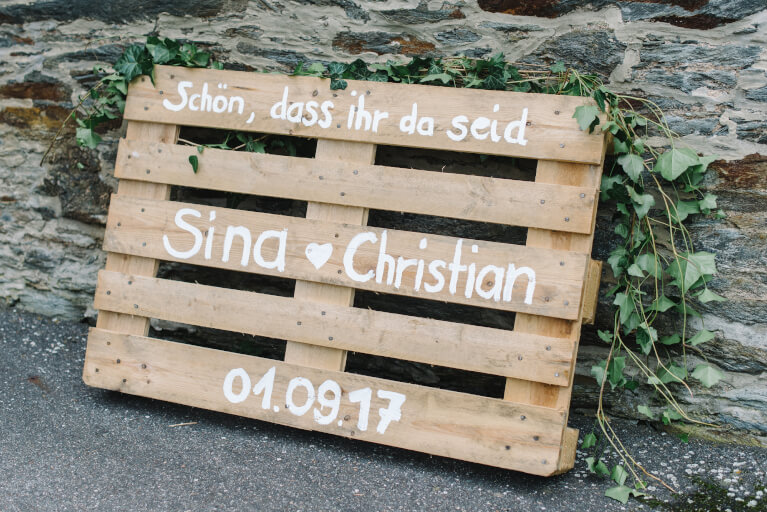 Schön, dass ihr da seid
Sina ♥ Christian
01.09.17